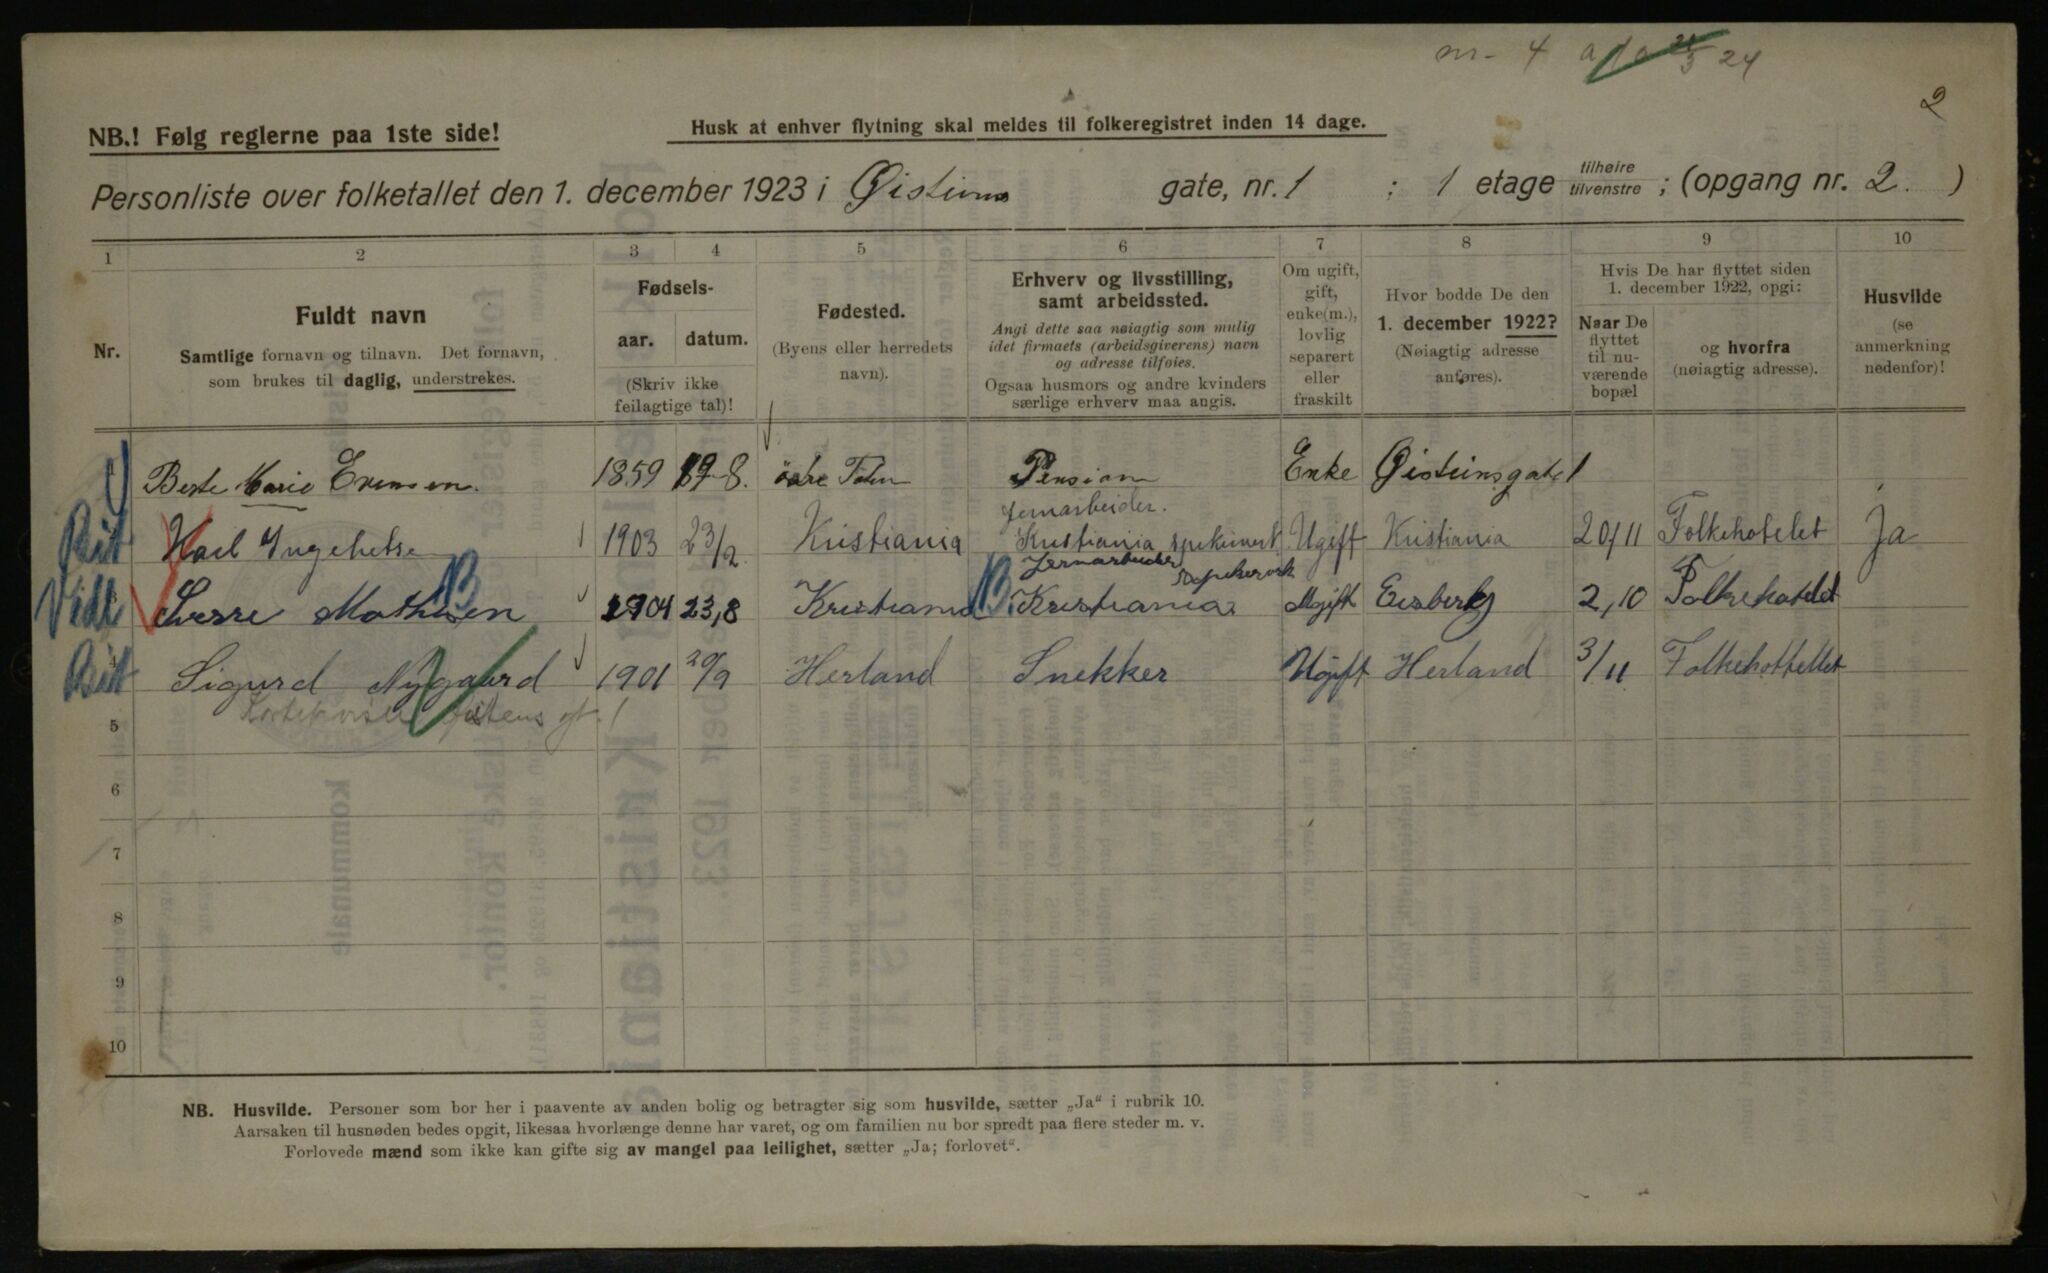 nr. 4 24
2
NB.! Følg reglerne paa 1ste side!
Husk at enhver flytning skal meldes til folkeregistret inden 14 dage.
Personliste over folketallet den 1. december 1923 i Øisteins gate, nr. 1 ; 1 etage tilhøire tilvenstre ; (opgang nr. 2. )
1 2 3 4 5 6 7 8 9 10
Nr.
Fuldt navn
Samtlige fornavn og tilnavn. Det fornavn,
som brukes til daglig, understrekes.
Fødsels-
aar. datum.
(Skriv ikke
feilagtige tal)!
Fødested.
(Byens eller herredets
navn).
Erhverv og livsstilling,
samt arbeidssted.
Angi dette saa nøiagtig som mulig
idet firmaets (arbeidsgiverens) navn
og adresse tilføies.
Ogsaa husmors og andre kvinders
særlige erhverv maa angis.
Om ugift,
gift,
enke(m.),
lovlig
separert
eller
fraskilt
Hvor bodde De den
1. december 1922?
(Nøiagtig adresse
anføres).
Hvis De har flyttet siden
1. december 1922, opgi:
Naar De
flyttet
til nu-
værende
bopæl
og hvorfra
(nøiagtig adresse).
Husvilde
(se
anmerkning
nedenfor)!
Marie Evensen. 1859 19-8. Pension Enke Øisteinsgate 1
Jernarbeider.
Karl 1903 23/2 Kristiania Kristiania Ugift Kristiania 20/11 Folkehotelet Ja
Jernarbeider
Sverre Mathisen 1904 23,8 Kristiania Kristiania Ugift 2,10 Folkehotelet
Sigurd Nygaard 1901 20/9 Herland Snekker Ugift Herland 3/11 Folkehottellet
5
6
7
8
9
10
NB. Husvilde. Personer som bor her i paavente av anden bolig og betragter sig som husvilde, sætter „Ja“ i rubrik 10.
Aarsaken til husnøden bedes opgit, likesaa hvorlænge denne har varet, og om familien nu bor spredt paa flere steder m. v.
Forlovede mænd som ikke kan gifte sig av mangel paa leilighet, sætter „Ja; forlovet“.